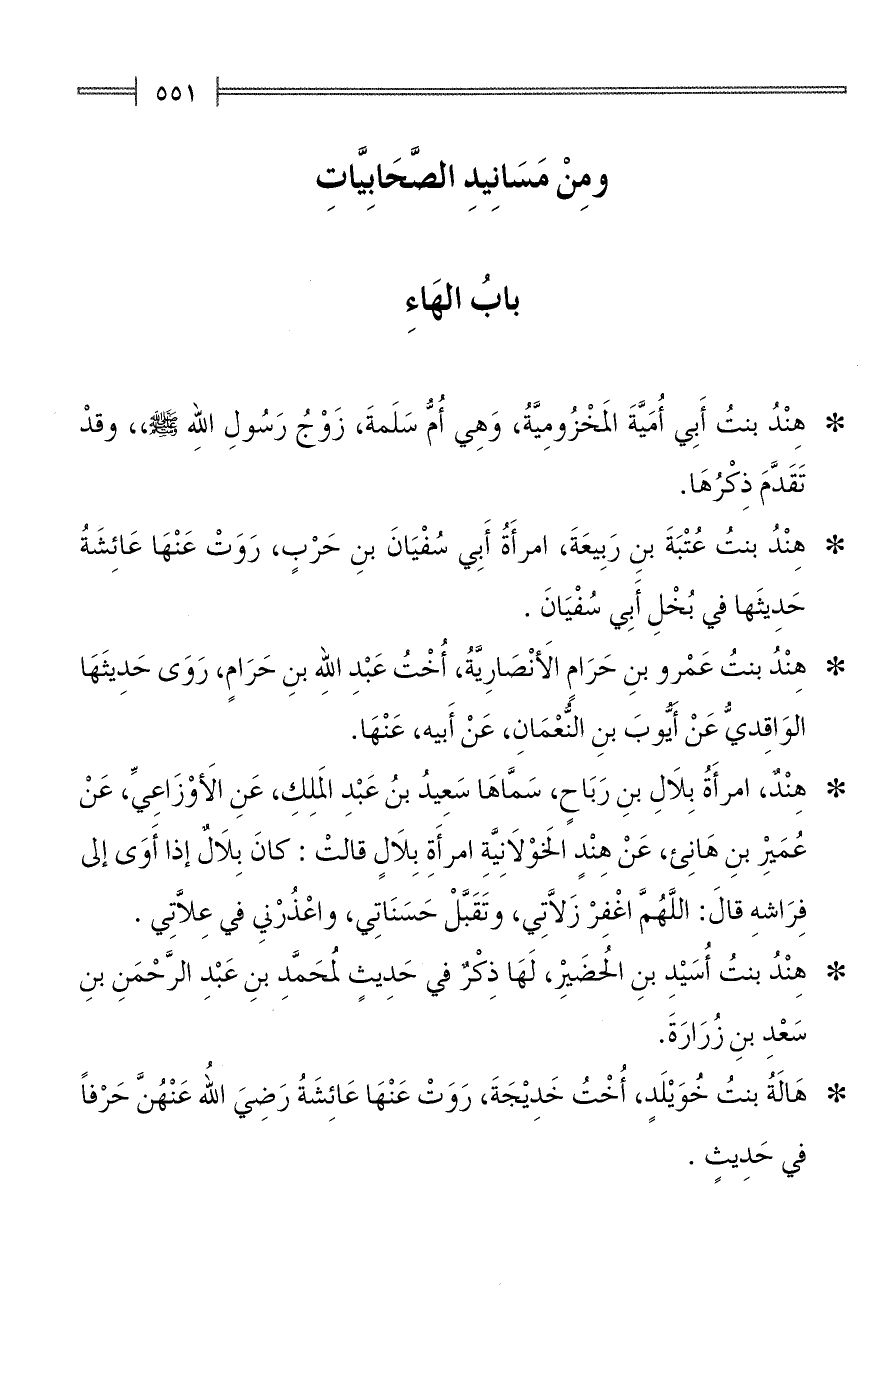 ٥٥١
ومِنْ مَسَانِيدِ الصَّحَابِيَّاتِ
بابُ الهَاءِ
* هِنْدُ بنتُ أَبي أُمَيَّةَ المَخْزُومِيَّةُ، وَهِي أُمُّ سَلَمةَ، زَوْجُ رَسُولِ اللهِ ﷺ،، وقدْ
تَقَدَّمَ ذِكْرُهَا.
* هِنْدُ بنتُ عُتْبَةَ بنِ رَبِيعَةَ، امرأَةُ أَبي سُفْيَانَ بنِ حَرْبٍ، رَوَتْ عَنْهَا عَائِشَةُ
حَدِيثَها في بُخْلِ أَبي سُفْيَانَ .
* هِنْدُ بنتُ عَمْرو بنِ حَرَامٍ الأَنْصَارِيَّةُ، أُخْتُ عَبْدِ اللهِ بنِ حَرَامٍ، رَوَى حَدِيثَهَا
الوَاقِديُّ عَنْ أَيُّوبَ بنِ النُّعْمَانِ، عَنْ أَبيه، عَنْهَا.
* هِنْدٌ، امرأَةُ بِلَالِ بنِ رَبَاحٍ، سَمَّاهَا سَعِيدُ بنُ عَبْدِ المَلِكِ، عَنِ الأَوْزَاعِيِّ، عَنْ
عُمَيرْ بنِ هَانِئ، عَنْ هِنْدٍ الخَوْلَانِيَّةِ امرأَةِ بِلَالٍ قالتْ : كانَ بِلَالٌ إذا أَوَى إلى
فِرَاشِه قالَ: اللَّهُمَّ اغْفِرْ زَلاَّتي، وتَقَبَّلْ حَسَنَاتي، واعْذُرْنِي في عِلاَّتي .
* هِنْدُ بنتُ أُسَيْدِ بنِ الحُضَيْرِ، لَهَا ذِكْرٌ في حَدِيثٍ لمُحَمَّدِ بنِ عَبْدِ الرَّحْمَنِ بنِ
سَعْدِ بنِ زُرَارَةَ.
* هَالَةُ بنتُ خُوَيْلَدٍ، أُخْتُ خَدِيْجَةَ، رَوَتْ عَنْهَا عَائِشَةُ رَضِيَ اللهُ عَنْهُنَّ حَرْفاً
في حَدِيثٍ .